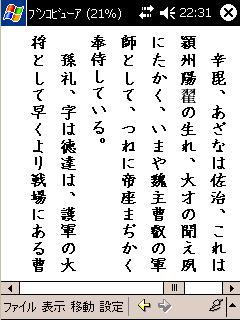 ブンコビューア (21%) 22:31
辛毘、あざなは佐治、これは
潁州陽翟の生れ、大才の聞え夙
にたかく、いまや魏主曹叡の軍
師として、つねに帝座まぢかく
奉侍している。
孫礼、字は徳達は、護軍の大
将として早くより戦場にある曹
ファイル 表示 移動 設定